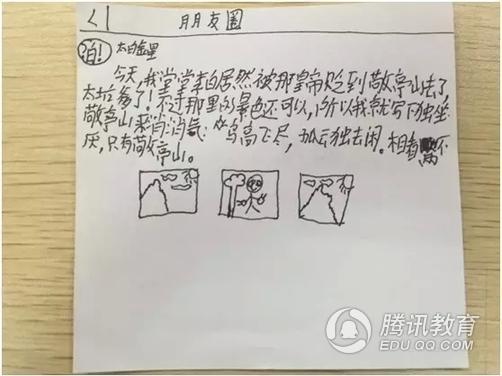 <| 朋友圈
白! 太白金星
今天,我堂堂李白居然被那皇帝贬到敬亭山去了,
太坑爹了!不过那里的景色还可以,所以我就写下独坐
敬亭山来消消气:众鸟高飞尽,孤云独去闲。相看不
厌,只有敬亭山。
腾讯教育
EDU.QQ.COM